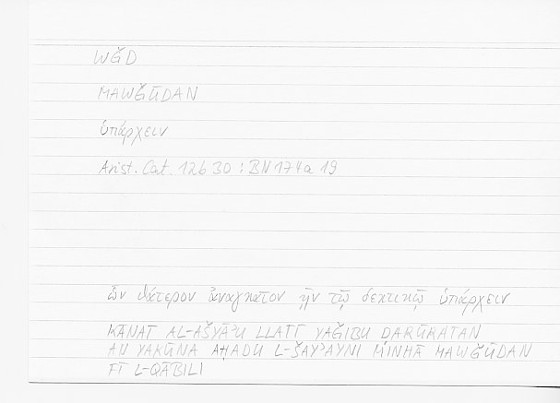 WǦD
MAWǦŪDAN
ὑπάρχειν
Arist. Cat. 12b30 : BN 174a 19
ὧν θάτερον ἀναγκαῖον ἦν τῷ δεκτικῷ ὑπάρχειν
KĀNAT AL-AŠYĀʾU LLATĪ YAǦIBU ḌARŪRATAN
AN YAKŪNA AḤADU L-ŠAYʾAYNI MINHĀ MAWǦŪDAN
FĪ L-QĀBILI